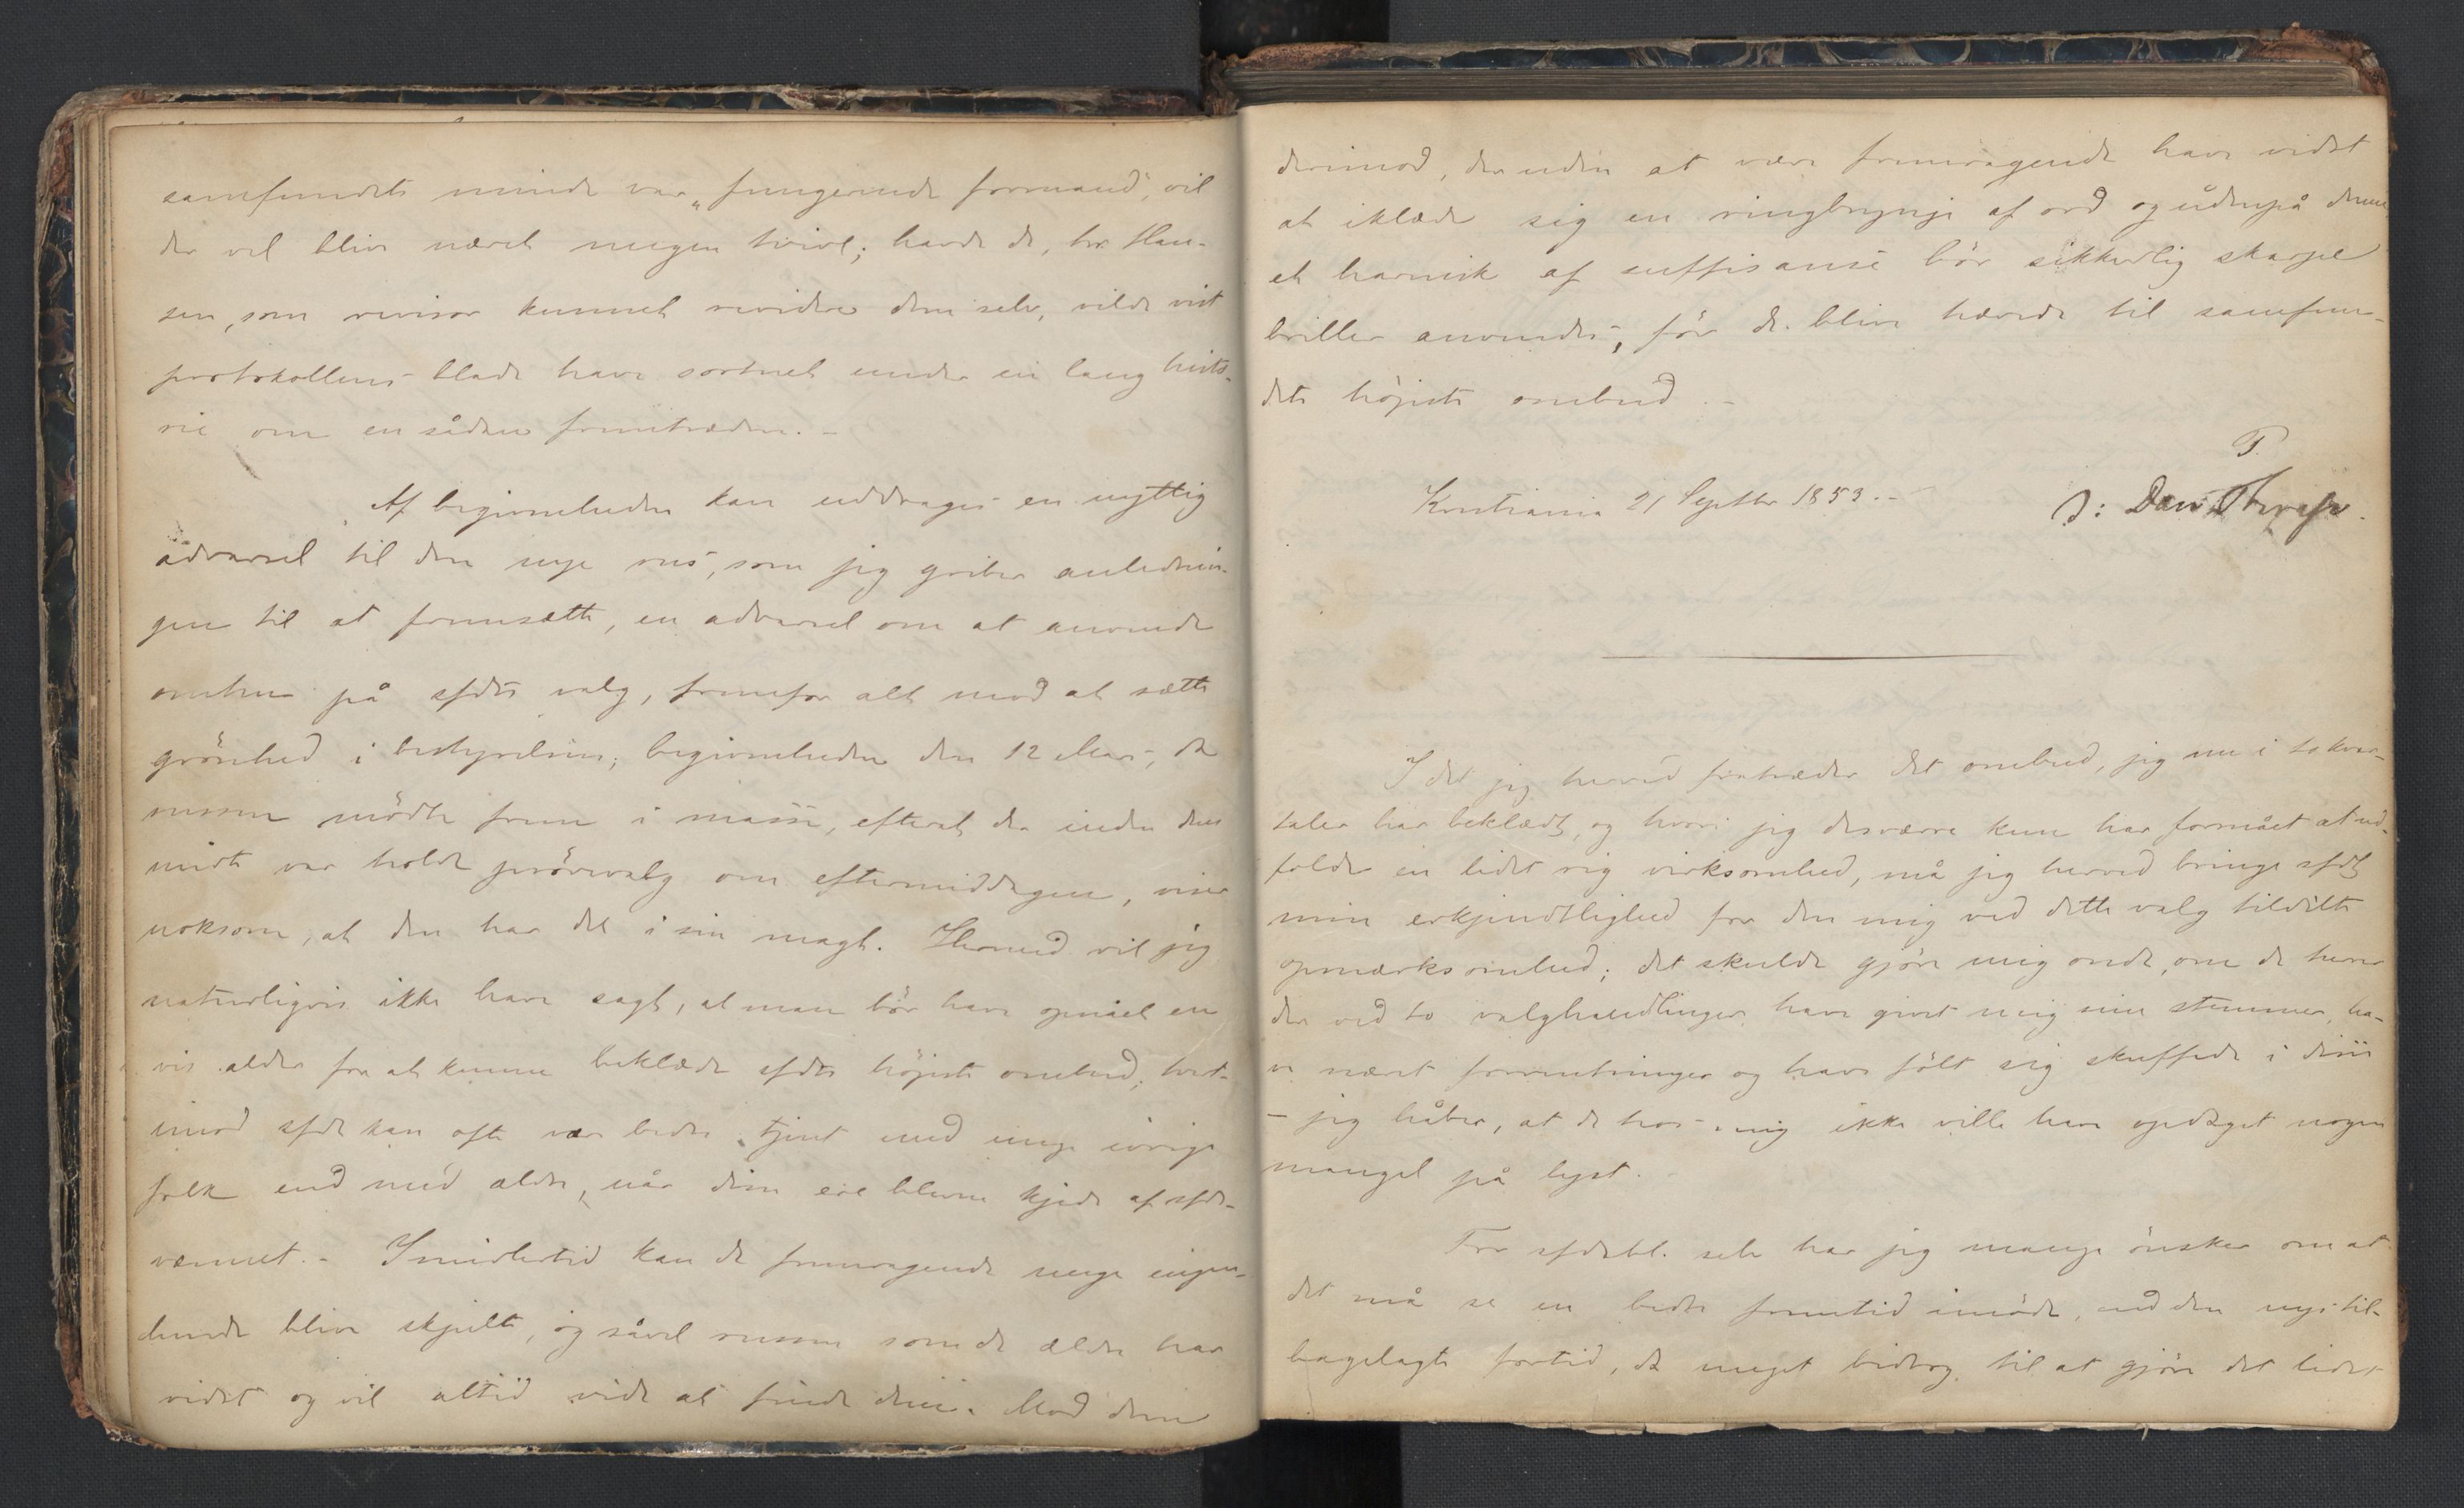 samfundets minde var „fungerende formand", vil
der vel blive næret megen tvivl; havde de, hr. Han-
sen, som revisor kunnet revidere dem selv, vilde vist
protokollens blade have sortnet under en lang histo-
rie om en sådan fremtræden. –
Af begivenheden kan uddrages en nyttig
advarsel til den nye rus, som jeg griber anlednin-
gen til at fremsætte, en advarsel om at anvende
omhu på sfdts valg, fremfor alt mod at sætte
grönhed i bestyrelsen; begivenheden den 12 Mars, da
russen mödte frem i masse, efterat der inden dens
midte var holdt prövevalg om eftermiddagen, viser
noksom, at den har det i sin magt. Hermed vil jeg
naturligvis ikke have sagt, at man bör have opnået en
vis alder for at kunne beklæde sfdts höjeste ombud; tvert-
imod sfdt kan ofte være bedre tjent med unge ivrige
folk end med ældre, når disse ere blevne kjede af sfds-
væsnet. – Imidlertid kan de fremragende unge ingen-
lunde blive skjulte, og såvel russen som de ældre har
vidst og vil altid vide at finde dem. Mod dem
derimod, der uden at være fremragende have vidst
at iklæde sig en ringbrynje af ord og udenpå denne
et harnisk af suffisanse bör sikkerlig skarpe
briller anvendes, för de blive hævede til samfun-
dets höjeste ombud. –
Kristiania 21 Septbr 1853. –
T.
ɔ: Dan Thrap.
Idet jeg herved fratræder det ombud, jeg nu i to kvar-
taler har beklædt, og hvori jeg desværre kun har formået at ud-
folde en lidet rig virksomhed, må jeg herved bringe sfdt
min erkjendtlighed for den mig ved dette valg tildelte
opmærksomhed; det skulde gjöre mig ondt, om de herrer
der ved to valghandlinger have givet mig sine stemmer, ha-
ve næret forventninger og have fölt sig skuffede i disse
– jeg håber, at de hos mig ikke ville have opdaget nogen
mangel på lyst. –
For sfdsbl. selv har jeg mange önsker om at
det må se en bedre fremtid imöde, end den nys til-
bagelagte fortid, da meget bidrog til at gjöre det lidet